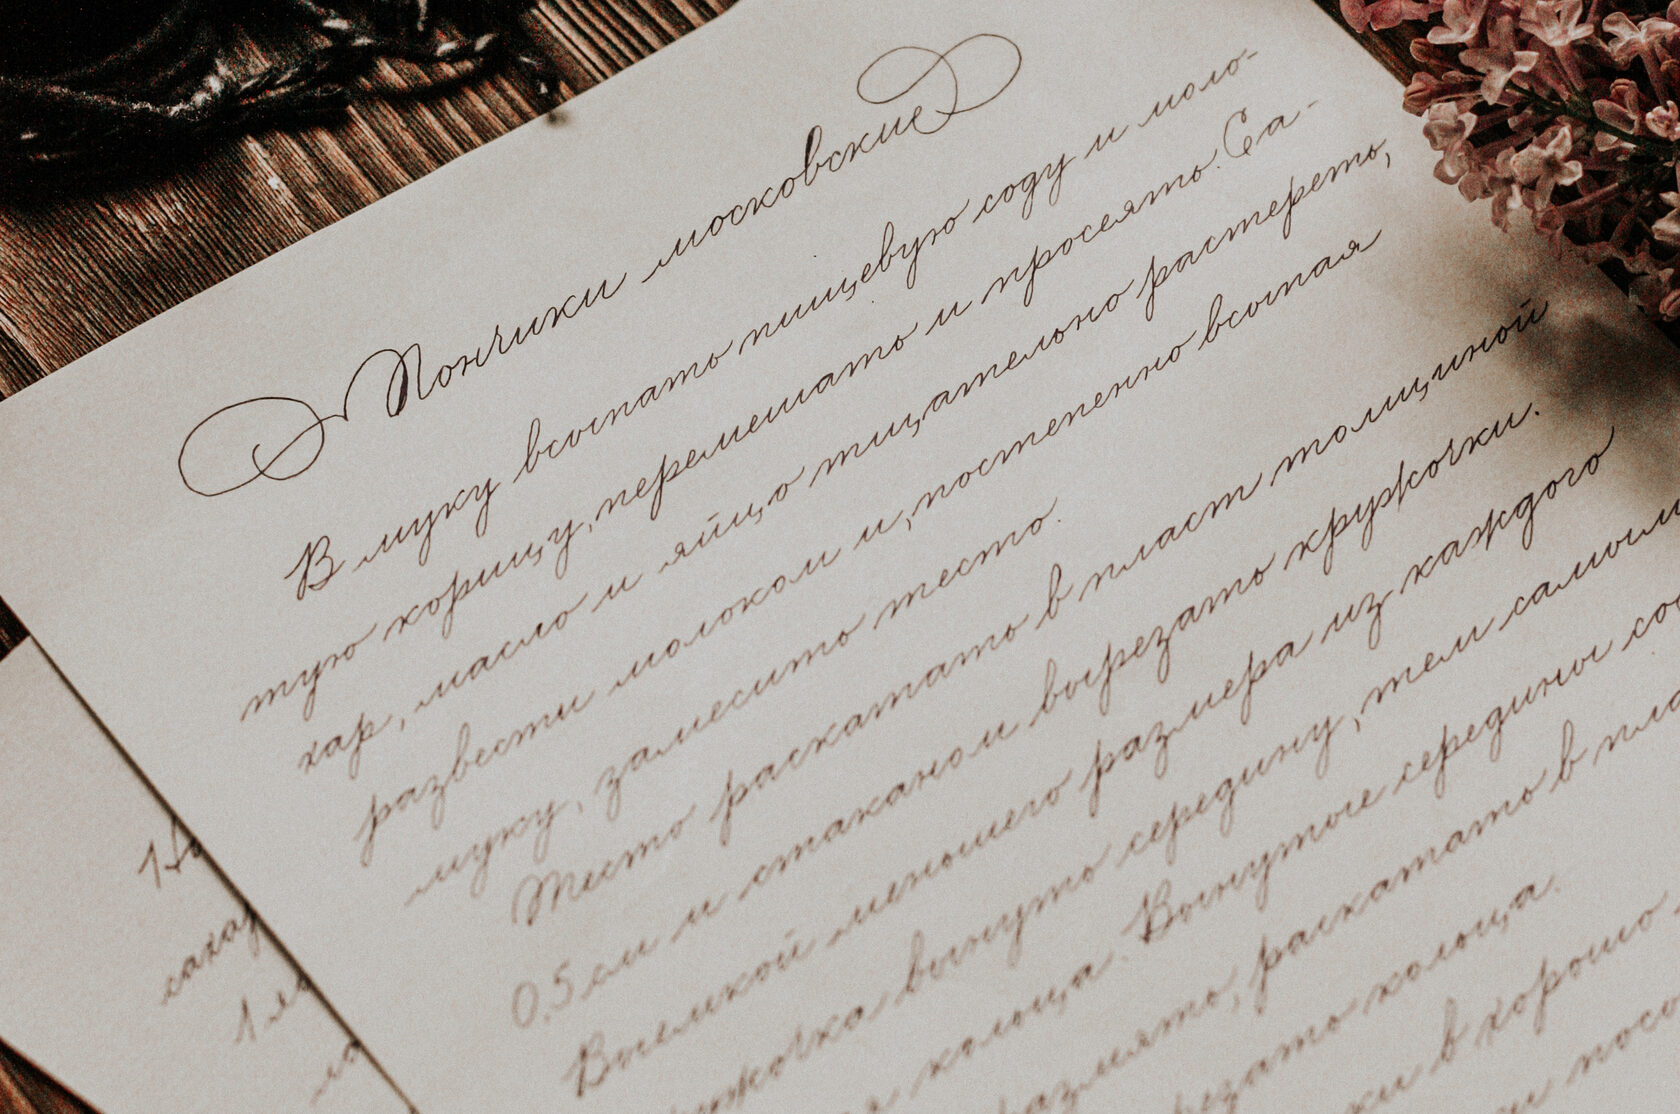 Пончики московские
В муку всыпать пищевую соду и моло-
тую корицу, перемешать и просеять. Са-
хар, масло и яйцо тщательно растереть,
развести молоком и, постепенно всыпая
муку, замесить тесто.
Тесто раскатать в пласт толщиной
0,5 см и стаканом вырезать кружочки.
Выемкой меньшего размера из каждого
вынуть середину, тем самым
кольца. Вынутые середины
раскатать в
кольца.
в хорошо
1
1